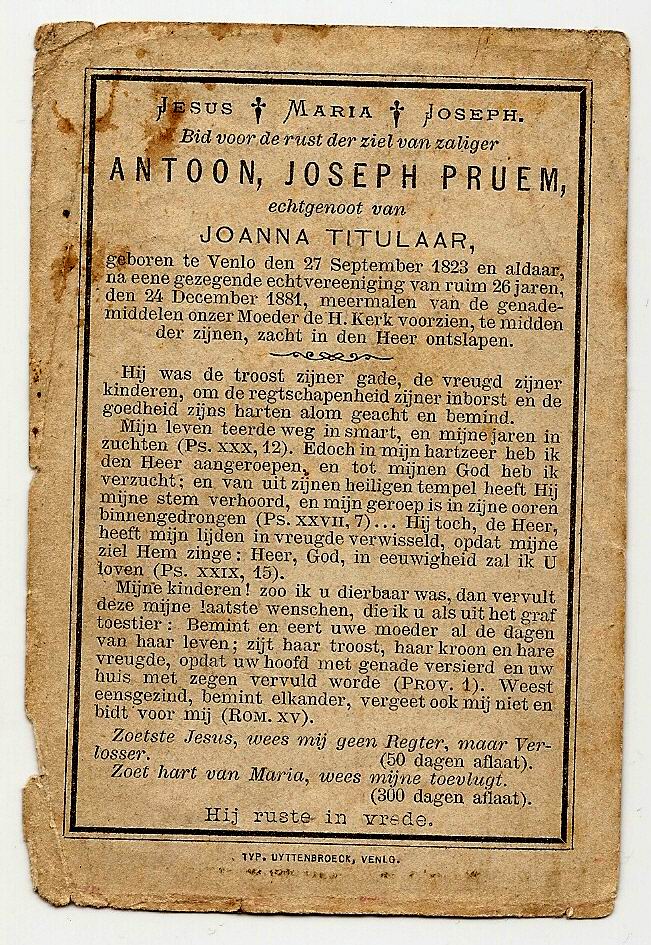 JESUS † MARIA † JOSEPH.
Bid voor de rust der ziel van zaliger
ANTOON, JOSEPH PRUEM,
echtgenoot van
JOANNA TITULAAR,
geboren te Venlo den 27 September 1823 en aldaar,
na eene gezegende echtvereeniging van ruim 26 jaren,
den 24 December 1881, meermalen van de genade-
middelen onzer Moeder de H. Kerk voorzien, te midden
der zijnen, zacht in den Heer ontslapen.
Hij was de troost zijner gade, de vreugd zijner
kinderen, om de regtschapenheid zijner inborst en de
goedheid zijns harten alom geacht en bemind.
Mijn leven teerde weg in smart, en mijne jaren in
zuchten (PS. XXX, 12). Edoch in mijn hartzeer heb ik
den Heer aangeroepen, en tot mijnen God heb ik
verzucht; en van uit zijnen heiligen tempel heeft Hij
mijne stem verhoord, en mijn geroep is in zijne ooren
binnengedrongen (PS. XXVII, 7)... Hij toch, de Heer,
heeft mijn lijden in vreugde verwisseld, opdat mijne
ziel Hem zinge: Heer, God, in eeuwigheid zal ik U
loven (PS. XXIX, 15).
Mijne kinderen! zoo ik u dierbaar was, dan vervult
deze mijne laatste wenschen, die ik u als uit het graf
toestier: Bemint en eert uwe moeder al de dagen
van haar leven; zijt haar troost, haar kroon en hare
vreugde, opdat uw hoofd met genade versierd en uw
huis met zegen vervuld worde (PROV. 1). Weest
eensgezind, bemint elkander, vergeet ook mij niet en
bidt voor mij (ROM. XV).
Zoetste Jesus, wees mij geen Regter, maar Ver-
losser. (50 dagen aflaat).
Zoet hart van Maria, wees mijne toevlugt.
(300 dagen aflaat).
Hij ruste in vrede.
TYP. UYTTENBROECK, VENLO.